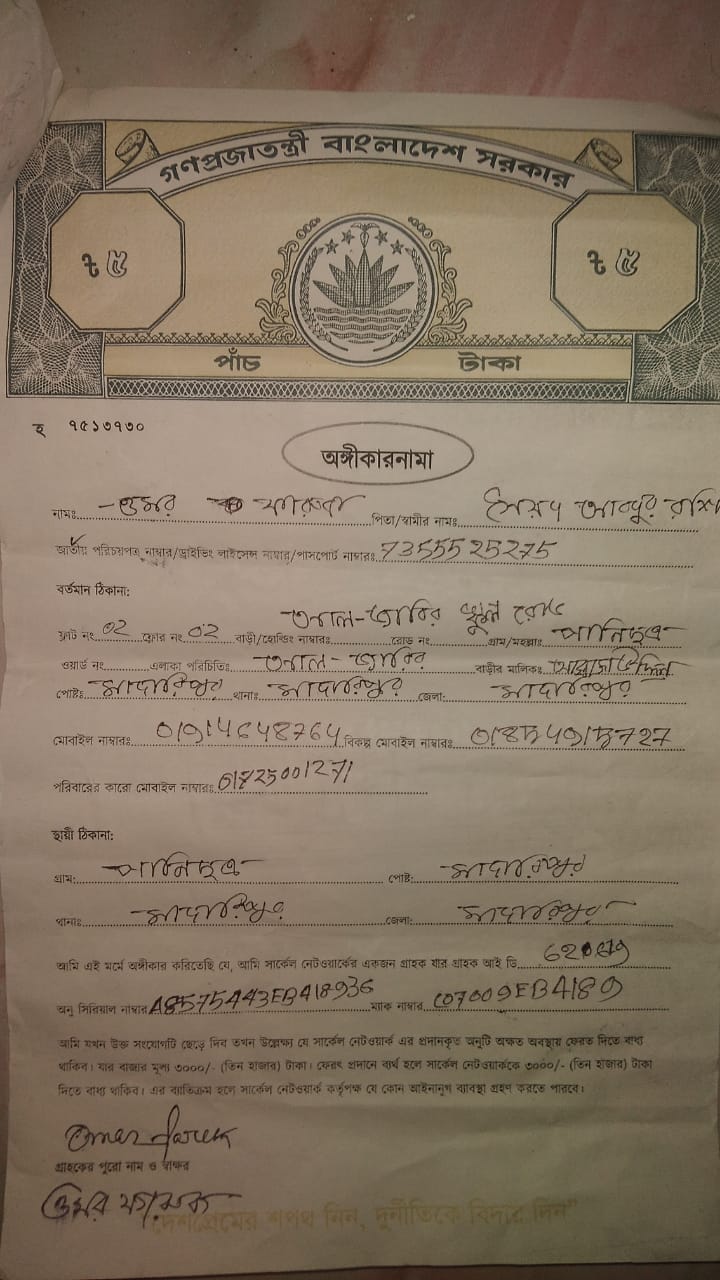 গণপ্রজাতন্ত্রী বাংলাদেশ সরকার
৳ ৫ ৳ ৫
পাঁচ টাকা
হ ৭৫১৩৭৩০
অঙ্গীকারনামা
নামঃ ওমর ফারুক পিতা/স্বামীর নামঃ সৈয়দ আব্দুর রশি
জাতীয় পরিচয়পত্র নাম্বার/ড্রাইভিং লাইসেন্স নাম্বার/পাসপোর্ট নাম্বারঃ 7355525275
বর্তমান ঠিকানা:
আল-জাবির স্কুল রোড
ফ্লাট নং 02 ফ্লোর নং 02 বাড়ী/হোল্ডিং নাম্বারঃ রোড নং গ্রাম/মহল্লাঃ পানিছত্র
ওয়ার্ড নং এলাকা পরিচিতিঃ আল-জাবির বাড়ীর মালিকঃ
পোষ্টঃ মাদারিপুর থানাঃ মাদারিপুর জেলা: মাদারিপুর
মোবাইল নাম্বারঃ 01914648764 বিকল্প মোবাইল নাম্বারঃ
পরিবারের কারো মোবাইল নাম্বারঃ 01725001271
স্থায়ী ঠিকানা:
গ্রাম: পানিছত্র পোষ্ট: মাদারিপুর
থানাঃ মাদারিপুর জেলা: মাদারিপুর
আমি এই মর্মে অঙ্গীকার করিতেছি যে, আমি সার্কেল নেটওয়ার্কের একজন গ্রাহক যার গ্রাহক আই ডি
অনু সিরিয়াল নাম্বার A8575443EB418936 ম্যাক নাম্বার
আমি যখন উক্ত সংযোগটি ছেড়ে দিব তখন উল্লেখ্য যে সার্কেল নেটওয়ার্ক এর প্রদানকৃত অনুটি অক্ষত অবস্থায় ফেরত দিতে বাধ্য
থাকিব। যার বাজার মূল্য ৩০০০/- (তিন হাজার) টাকা। ফেরৎ প্রদানে ব্যর্থ হলে সার্কেল নেটওয়ার্ককে ৩০০০/- (তিন হাজার) টাকা
দিতে বাধ্য থাকিব। এর ব্যাতিক্রম হলে সার্কেল নেটওয়ার্ক কর্তৃপক্ষ যে কোন আইনানুগ ব্যাবস্থা গ্রহণ করতে পারবে।
Omar faruk
গ্রাহকের পুরো নাম ও স্বাক্ষর
ওমর ফারুক
"দেশপ্রেমের শপথ নিন, দুর্নীতিকে বিদায় দিন"